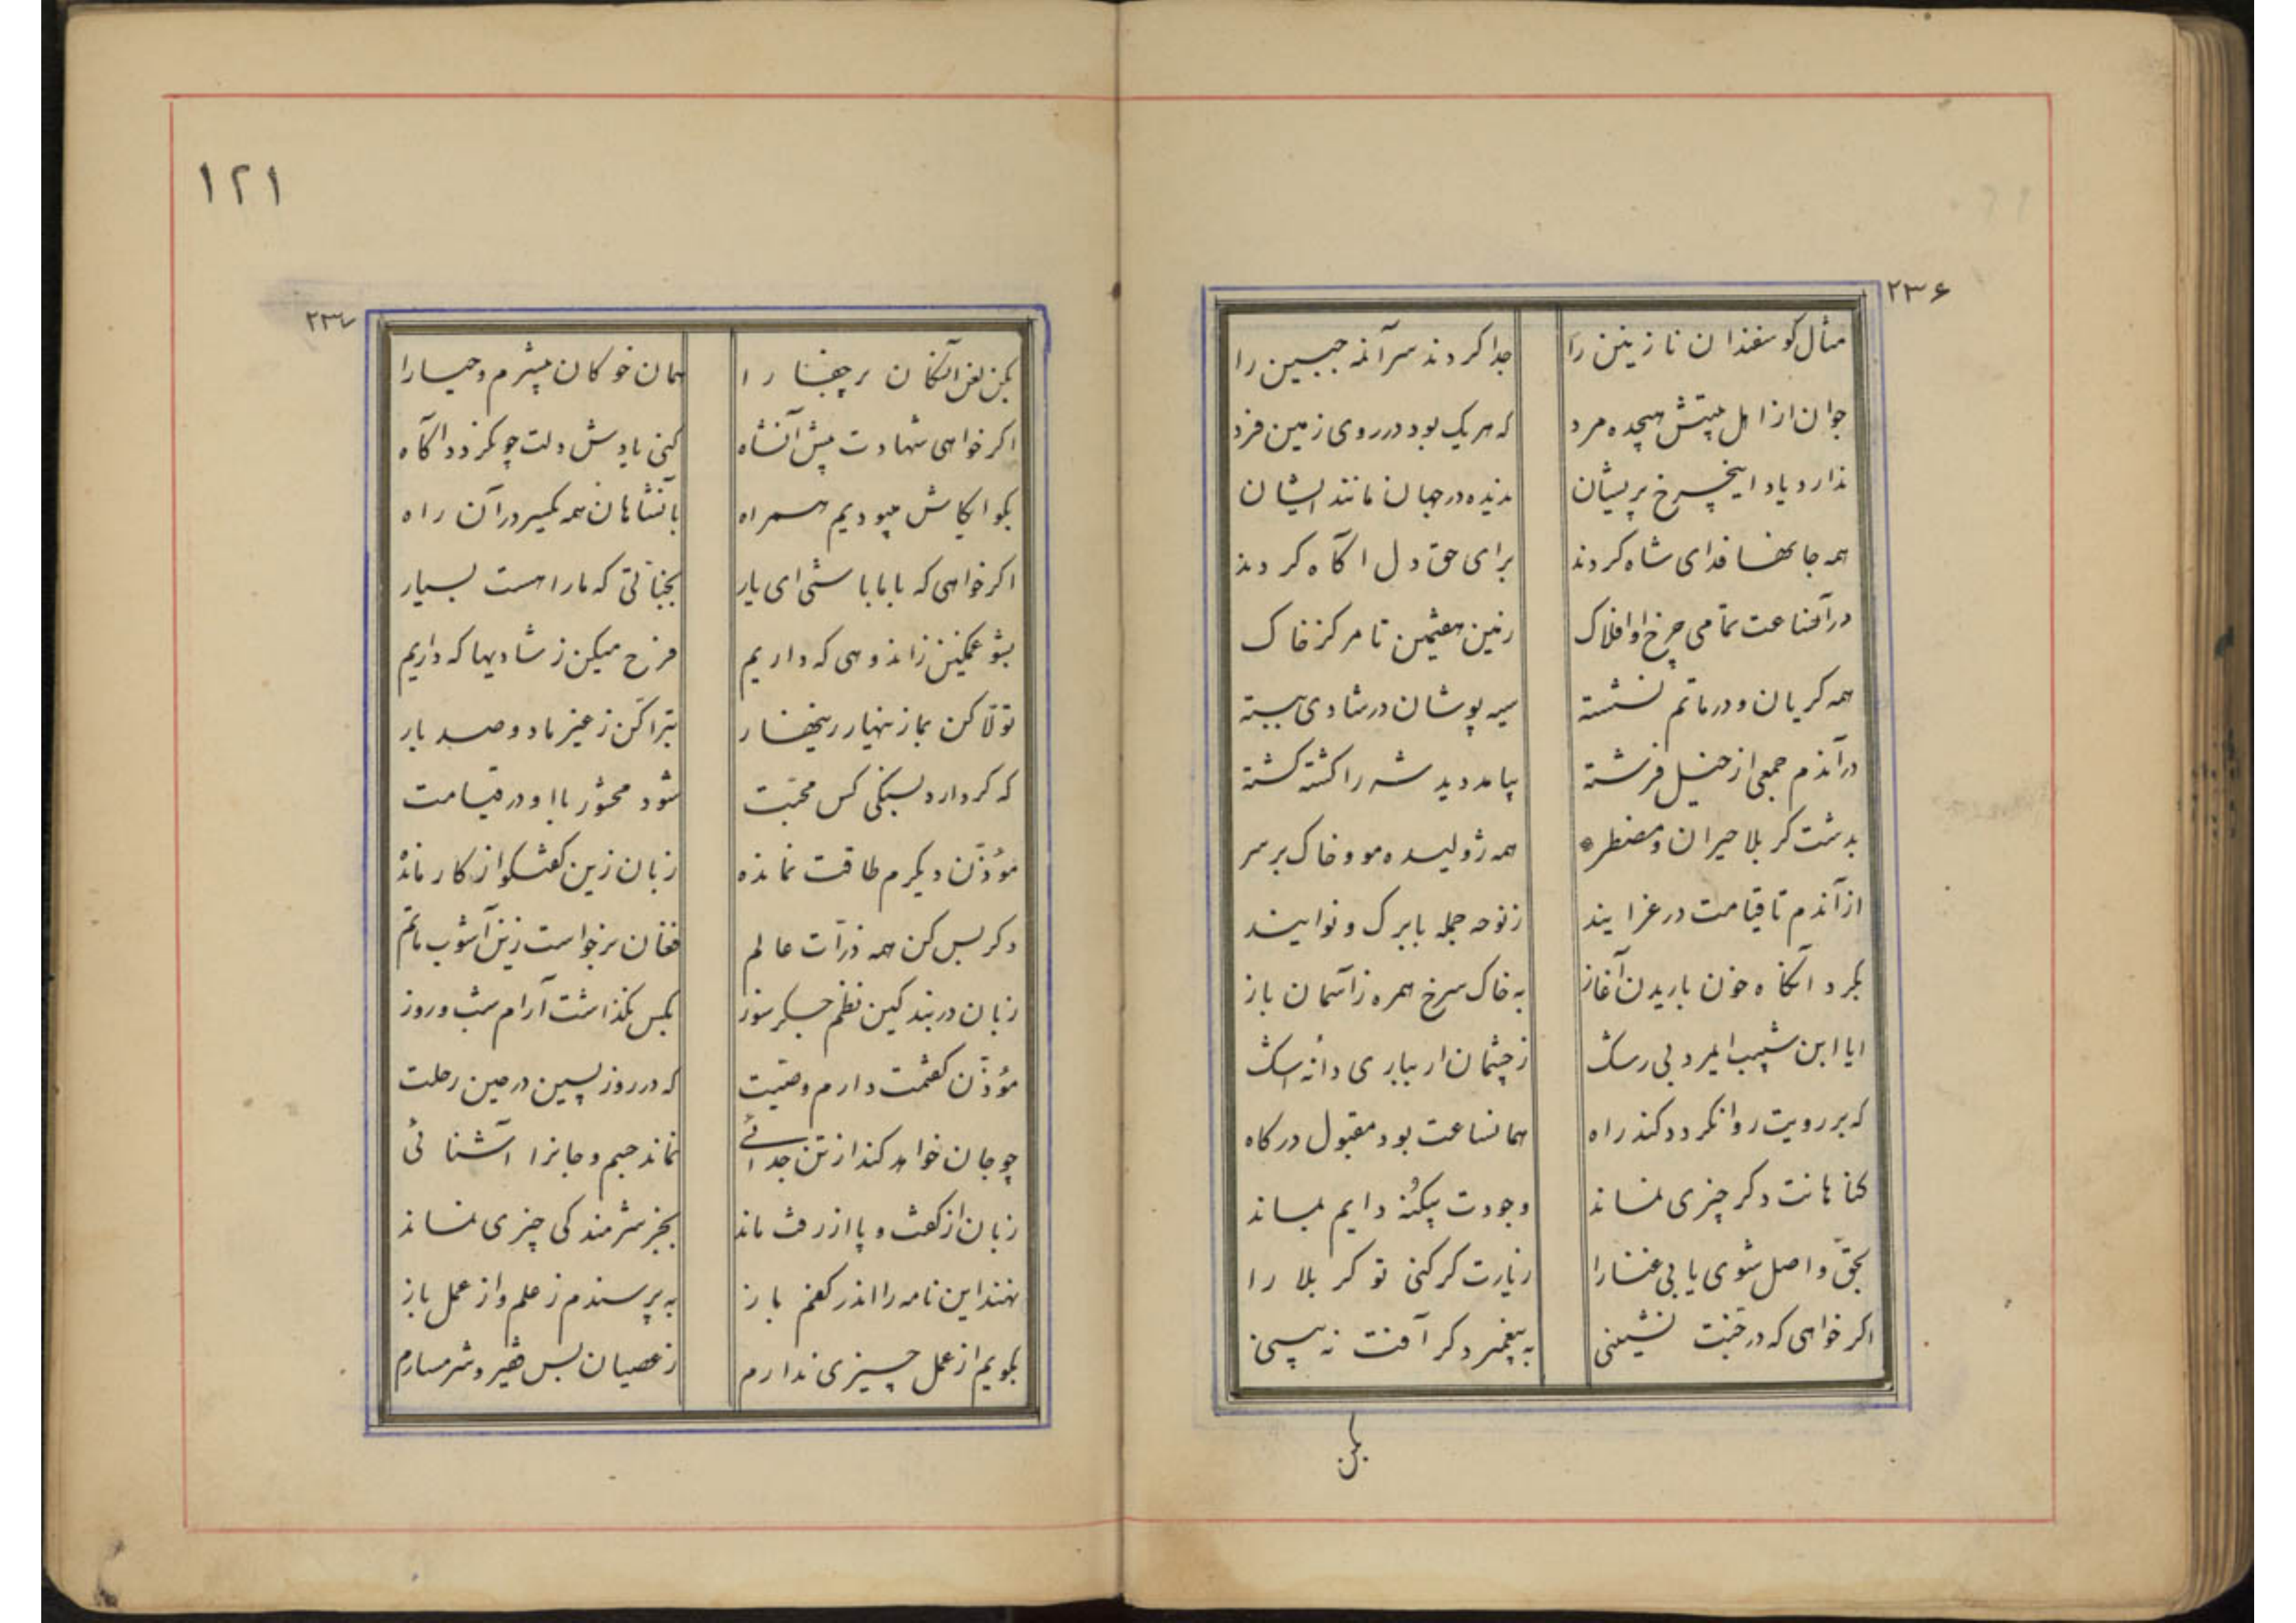 ۲۳۶
مثال کوسفندان نازنین را جدا کردند سر آنمه جبین را
جوان از اهل بیتش هیچده مرد که هر یک بود در روی زمین فرد
ندارد یاد اینچرخ پریشان ندیده در جهان مانند ایشان
همه جانها فدای شاه کردند برای حق دل اکاه کردند
در آنساعت تمامی چرخ و افلاک زمین هفتمین تا مرکز خاک
همه کریان و در ماتم نشسته سیه پوشان در شادی ببسته
در آندم جمعی از خیل فرشته بیامد دید شه را کشته کشته
بدشت کربلا حیران و مضطر همه ژولیده مو و خاک بر سر
از آندم تا قیامت در عزایند ز نوحه جمله با برک و نوایند
بکرد آنکاه خون باریدن آغاز به خاک سرخ همره ز آسمان باز
ایا ابن شبیب ایمرد بی رشک ز چشمان ار بباری دانه اشک
که بر رویت روان کردد کند راه همانساعت بود مقبول درکاه
کناهانت دکر چیزی نماند وجودت بیکنه دایم بماند
بحق واصل شوی یابی غنا را زیارت کر کنی تو کربلا را
اکر خواهی که در جنت نشینی به پیغمبر دکر آفت نه بینی
بکن
۱۲۱
۲۳۷
بکن لعن آنکان پرجفا را همان خوکان بیشرم و حیا را
اکر خواهی شهادت پیش آنشاه کنی یادش دلت چو کردد اکاه
بکو ایکاش میبودیم همراه بآنشاهان همه یکسر در آن راه
اکر خواهی که با بابا شی ای یار بجناتی که ما را هست بسیار
بشو غمکین ز اندوهی که داریم فرح میکن ز شادیها که داریم
تولا کن بما زنهار زنهار تبرا کن ز غیر ما دو صد بار
که کر دارد بسنکی کس محبت شود محشور با او در قیامت
مؤذن دیکرم طاقت نمانده زبان زین کفتکو از کار مانده
دکر بس کن همه ذرات عالم فغان برخواست زین آشوب ماتم
زبان در بند کین نظم جکرسوز بکس نکذاشت آرام شب و روز
مؤذن کفتمت دارم وصیت که در روز پسین در حین رحلت
چو جان خواهد کند از تن جدائے نماند جسم و جانرا آشنائی
زبان از کفت و پا از رفت ماند بجز شرمندکی چیزی نماند
نهند این نامه را اندر کفنم باز به پرسندم ز علم و از عمل باز
بکویم از عمل چیزی ندارم ز عصیان بس فقیر و شرمسارم